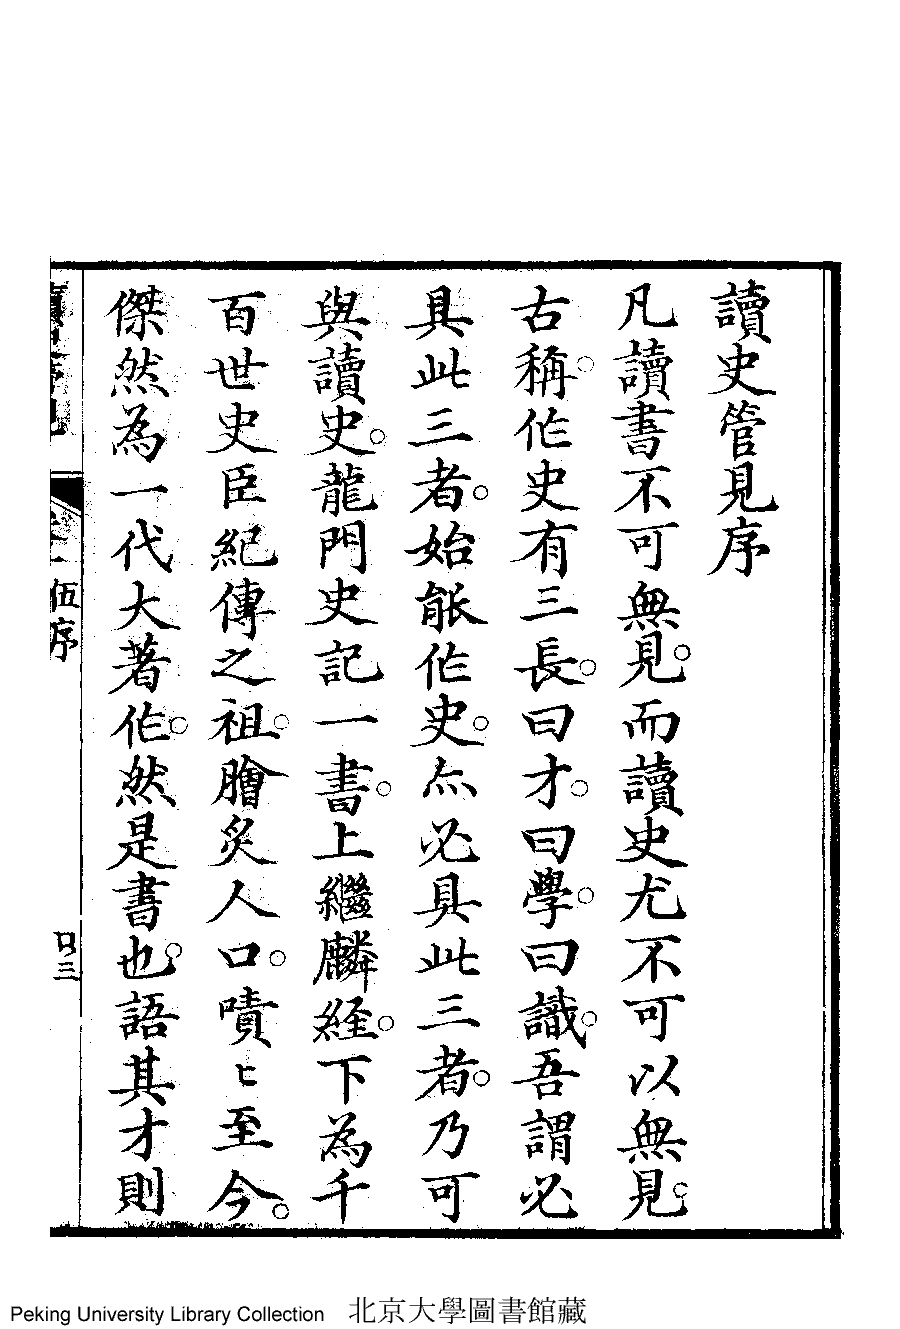 讀史管見序
凡讀書不可無見。而讀史尤不可以無見。
古稱。作史有三長。曰才。曰學。曰識。吾謂必
具此三者。始能作史。亦必具此三者。乃可
與讀史。龍門史記一書。上繼麟経。下為千
百世史臣紀傳之祖。膾炙人口。嘖〻至今。
傑然為一代大著作。然是書也。語其才則
伍序
口三
Peking University Library Collection 北京大學圖書館藏